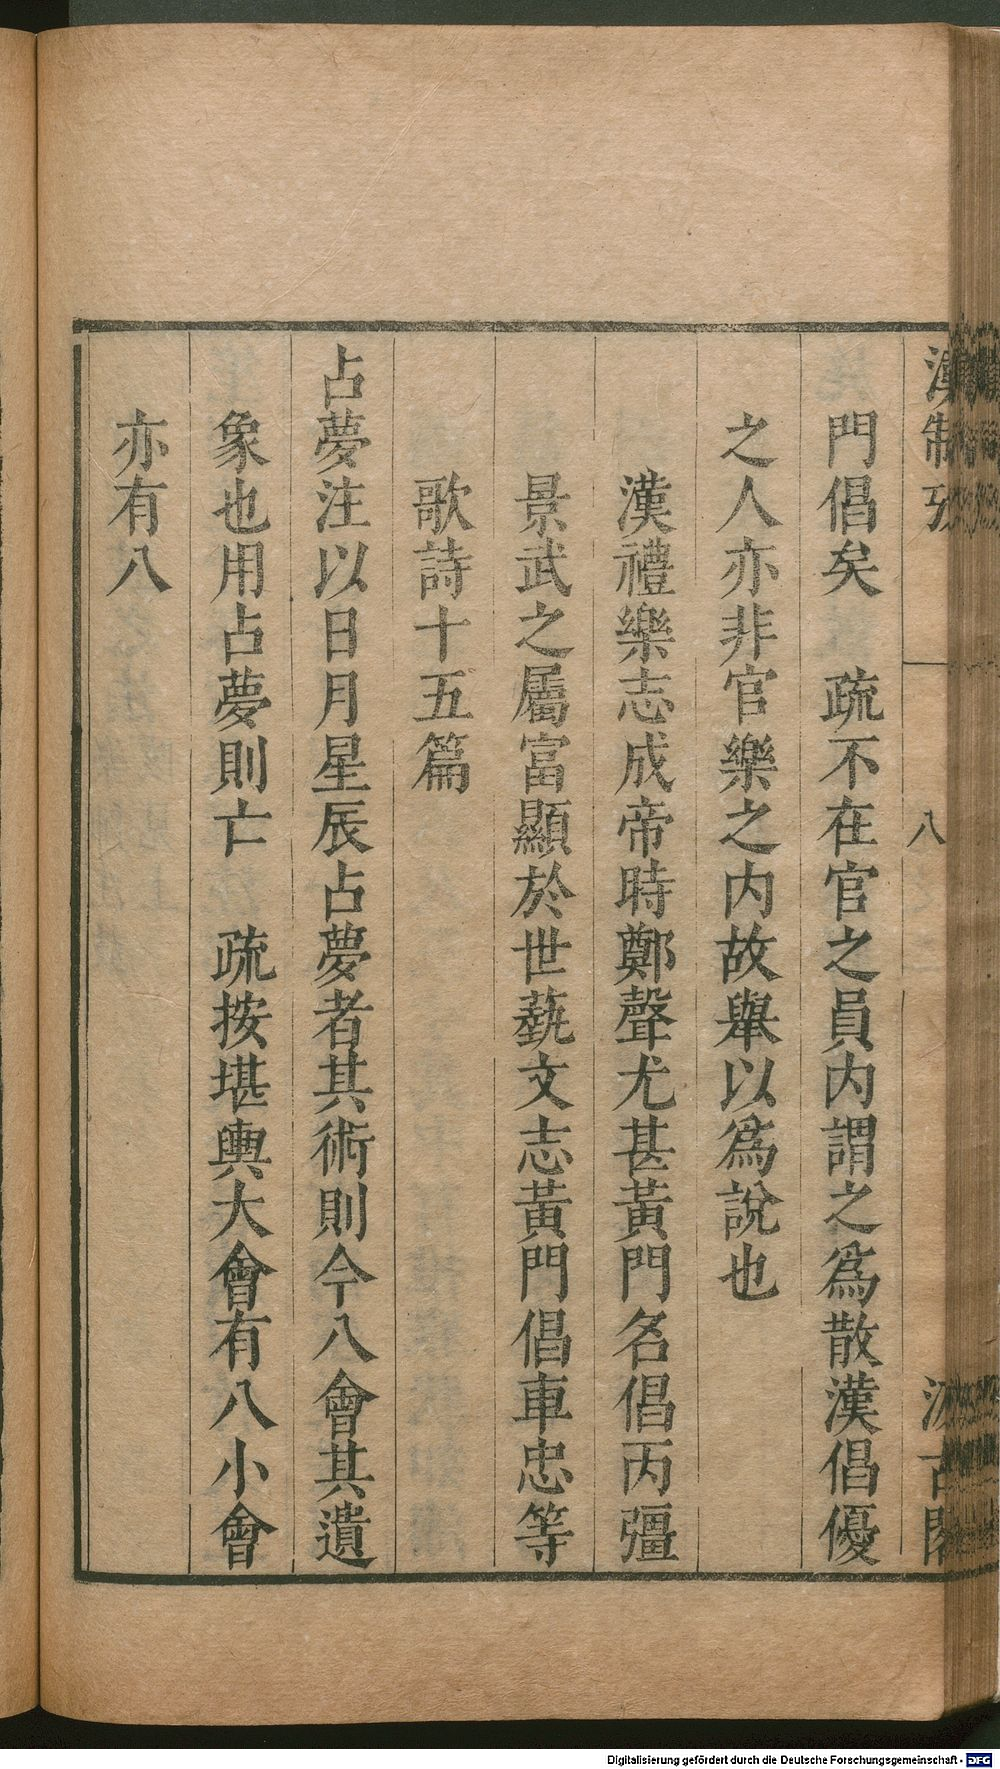 漢制攷
八
汲古閣
門倡矣　疏不在官之員内謂之爲散漢倡優
之人亦非官樂之内故舉以爲說也
漢禮樂志成帝時鄭聲尤甚黃門名倡丙彊
景武之屬富顯於世藝文志黃門倡車忠等
歌詩十五篇
占夢注以日月星辰占夢者其術則今八會其遺
象也用占夢則亡　疏按堪輿大會有八小會
亦有八
Digitalisierung gefördert durch die Deutsche Forschungsgemeinschaft - DFG